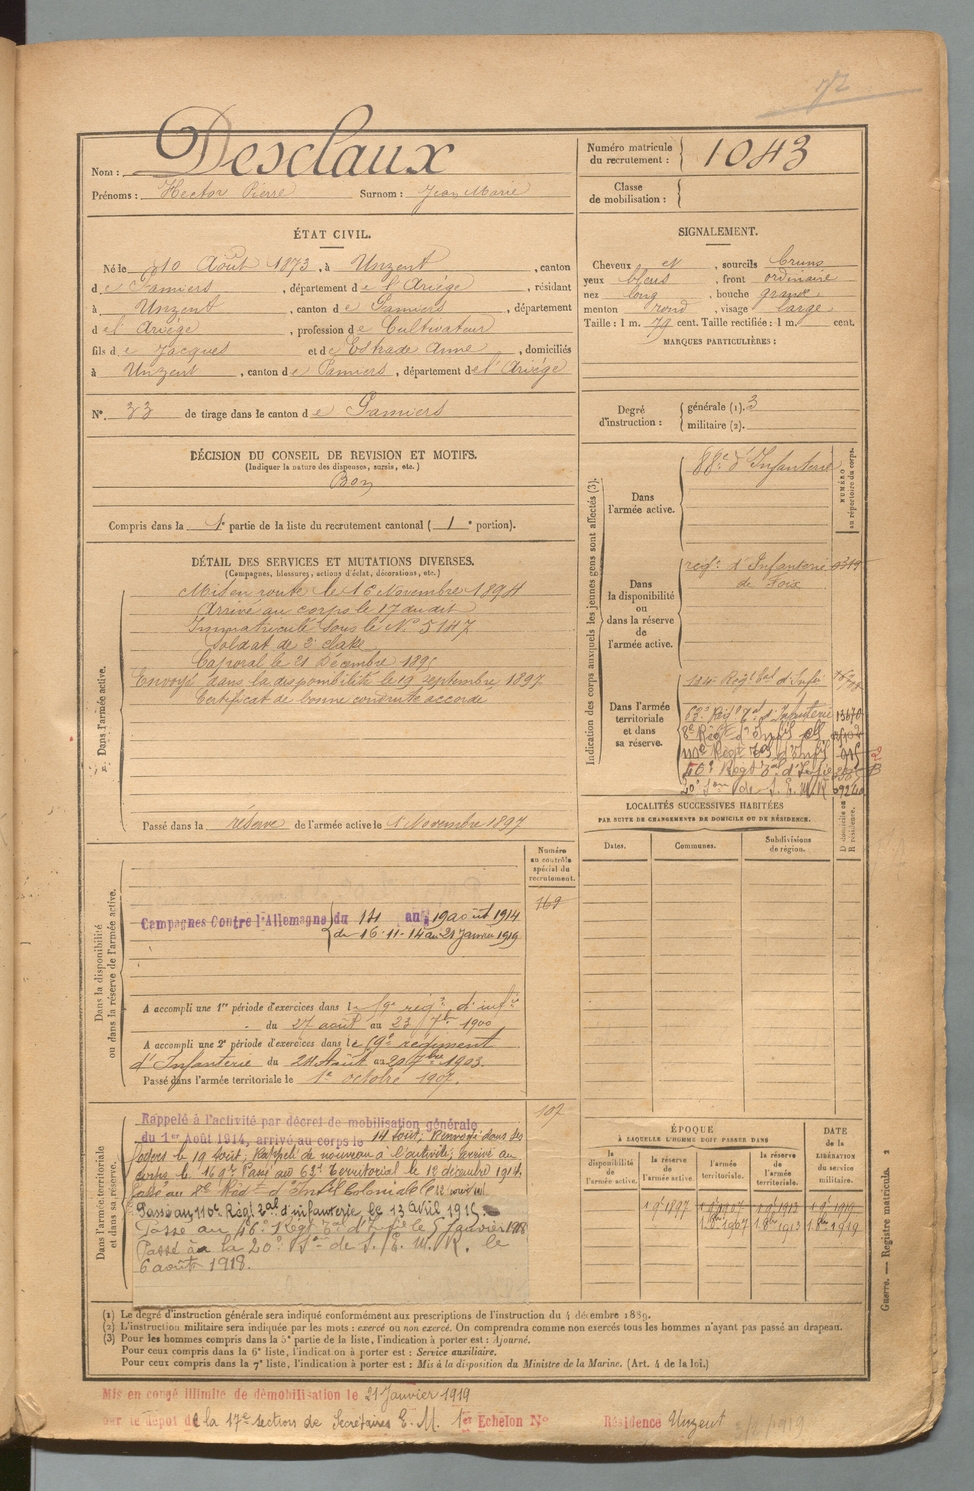 Nom : Desclaux
Prénoms : Hector Pierre Surnom : Jean Marie
Numéro matricule du recrutement : 1043
Classe de mobilisation :
ÉTAT CIVIL.
Né le 10 Août 1873, à Unzent, canton
de Pamiers, département de l'Ariége, résidant
à Unzent, canton de Pamiers, département
de l'Ariège, profession de Cultivateur
fils de Jacques et de Estrade Anne, domiciliés
à Unzent, canton de Pamiers, département de l'Ariège
N° 33 de tirage dans le canton de Pamiers
SIGNALEMENT.
Cheveux et, sourcils bruns
yeux bleus, front ordinaire
nez long, bouche grande
menton rond, visage large
Taille : 1 m. 79 cent. Taille rectifiée : 1 m. cent.
MARQUES PARTICULIÈRES :
Degré d'instruction : générale (1). 3
militaire (2).
DÉCISION DU CONSEIL DE REVISION ET MOTIFS.
(Indiquer la nature des dispenses, sursis, etc.)
Bon
Compris dans la 1e partie de la liste du recrutement cantonal ( 1e portion).
DÉTAIL DES SERVICES ET MUTATIONS DIVERSES.
(Campagnes, blessures, actions d'éclat, décorations, etc.)
Dans l'armée active.
Mis en route le 16 Novembre 1894
Arrivé au corps le 17 du dit
Immatriculé sous le N° 5147
Soldat de 2e classe
Caporal le 21 Décembre 1895
Envoyé dans la disponibilité le 19 Septembre 1897
Certificat de bonne conduite accordé
Passé dans la réserve de l'armée active le 1 Novembre 1897
Indication des corps auxquels les jeunes gens sont affectés (3).
NUMÉRO au répertoire du corps.
Dans l'armée active.
88e d'Infanterie
Dans la disponibilité ou dans la réserve de l'armée active.
régt d'Infanterie
de Foix
Dans l'armée territoriale et dans sa réserve.
63e Régt Tal d'Infanterie 13670
8e Régt d'Infie
110e Régt Tal d'Infie
46e Régt Tal d'Infie
20e Son de S. E. M. R
LOCALITÉS SUCCESSIVES HABITÉES
PAR SUITE DE CHANGEMENTS DE DOMICILE OU DE RÉSIDENCE.
Dates. Communes. Subdivisions de région. D domicile ou R résidence.
Dans la disponibilité ou dans la réserve de l'armée active.
Numéro au contrôle spécial du recrutement.
169
Campagnes Contre l'Allemagne du 14 au 19 août 1914
du 16-11-14 au 21 Janvier 1919
A accompli une 1re période d'exercices dans le 59e régt d'infie
du 27 août au 23 7bre 1900
A accompli une 2e période d'exercices dans le 59e régiment
d'Infanterie du 24 Août au 20 7bre 1903.
Passé dans l'armée territoriale le 1er octobre 1907.
107
Dans l'armée territoriale et dans sa réserve.
Rappelé à l'activité par décret de mobilisation générale
du 1er Août 1914, arrivé au corps le 14 août; Renvoyé dans ses
foyers le 19 août; Rappelé de nouveau à l'activité; arrivé au
corps le 16 9bre Passé au 63e Territorial le 12 décembre 1914
Passé au 8e Régt d'Infie Coloniale le 12 avril
Passe au 110e Régt Tal d'infanterie le 13 Avril 1915
Passé au 46e Régt Tal d'Infie le 5 Janvier 1918
Passé à la 20e Son de S. E. M. R. le
6 août 1918.
ÉPOQUE
À LAQUELLE L'HOMME DOIT PASSER DANS
la disponibilité de l'armée active.
la réserve de l'armée active.
l'armée territoriale.
la réserve de l'armée territoriale.
DATE de la LIBÉRATION du service militaire.
1 9e 1897 1 9e 1907 1 9e 1913 1 9e 1919
1 8bre 1907 1 8bre 1913 1 8bre 1919
Guerre. — Registre matricule.
(1) Le degré d'instruction générale sera indiqué conformément aux prescriptions de l'instruction du 4 décembre 1889.
(2) L'instruction militaire sera indiquée par les mots : exercé ou non exercé. On comprendra comme non exercés tous les hommes n'ayant pas passé au drapeau.
(3) Pour les hommes compris dans la 5e partie de la liste, l'indication à porter est : Ajourné.
Pour ceux compris dans la 6e liste, l'indication à porter est : Service auxiliaire.
Pour ceux compris dans la 7e liste, l'indication à porter est : Mis à la disposition du Ministre de la Marine. (Art. 4 de la loi.)
Mis en congé illimité de démobilisation le 21 Janvier 1919
par le dépôt de la 17e section de Secrétaires E. M. 1er Echelon N° Résidence Unzent